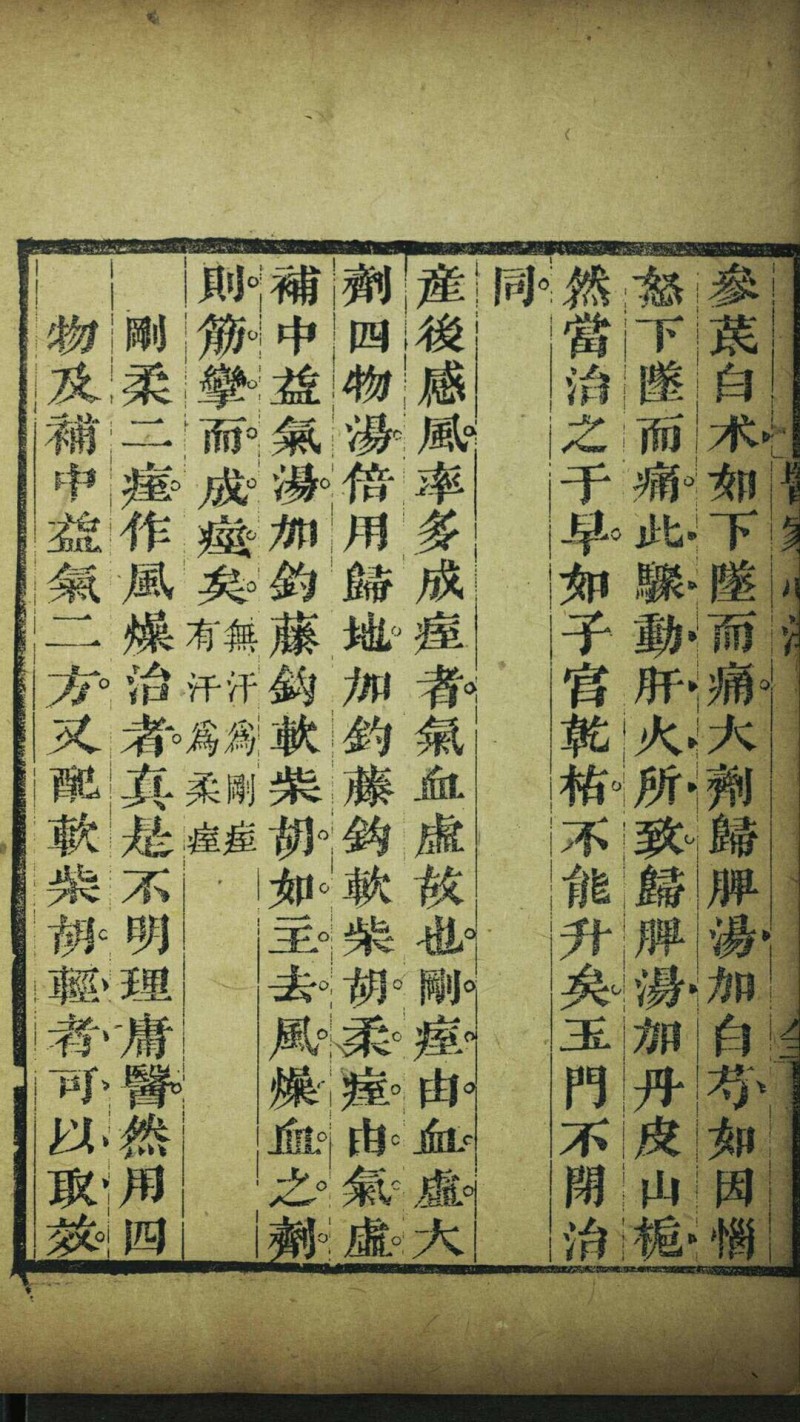 參芪白术如下墜而痛。大劑歸脾湯、加白芍、如因惱
怒下墜而痛。此驟動肝火所致。歸脾湯、加丹皮山梔、
然當治之于早。如子宮乾枯。不能升矣。玉門不閉治
同。
產後感風。率多成痓者。氣血虛故也。剛。痓。由。血。虛。大
劑四物湯。倍用歸地。加鈎藤鈎軟柴胡。柔。痓。由。氣。虛。
補中益氣湯。加鈎藤鈎軟柴胡。如。主。去。風。燥。血。之。劑。
則。筋。攣。而。成。痙。矣。無汗爲剛痓有汗爲柔痓
剛柔二痓。作風燥治者。真是不明理庸醫。然用四
物及補中益氣二方。又配軟柴胡。輕、者、可、以、取、效。